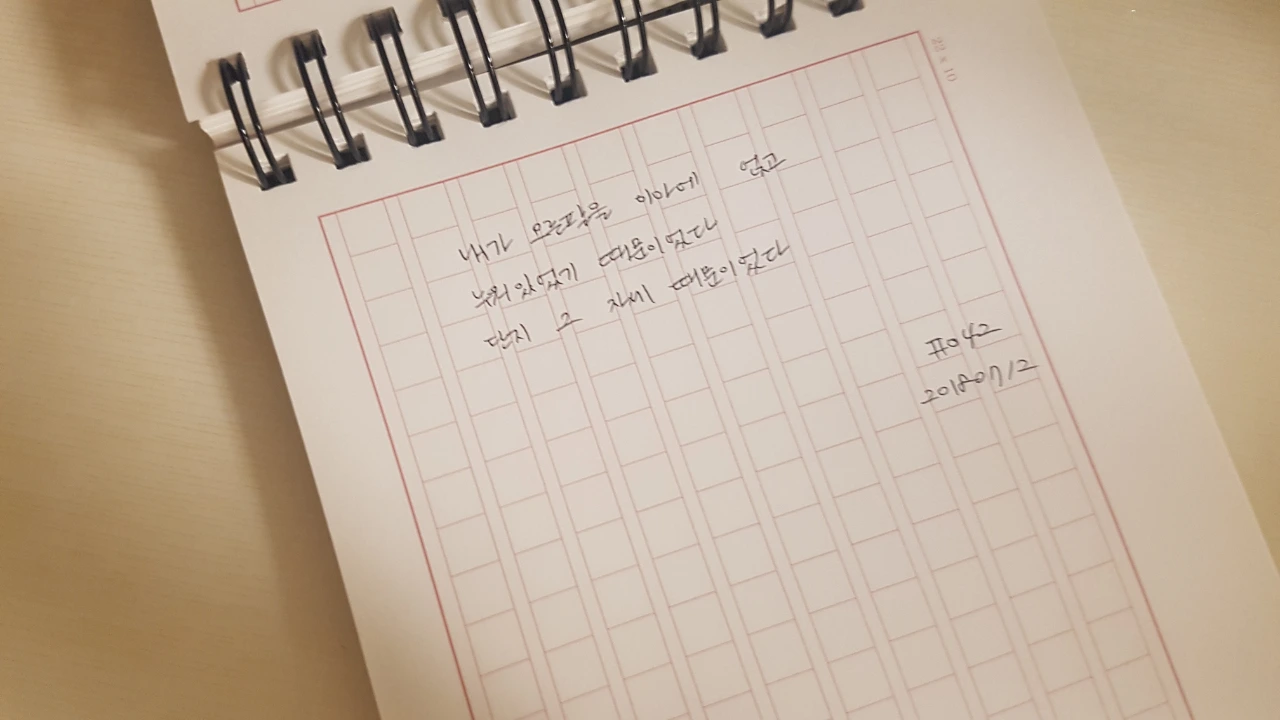 22 x 10
내가 오른팔을 이마에 얹고
누워있었기 때문이었다
단지 그 자세 때문이었다
#042
20180712